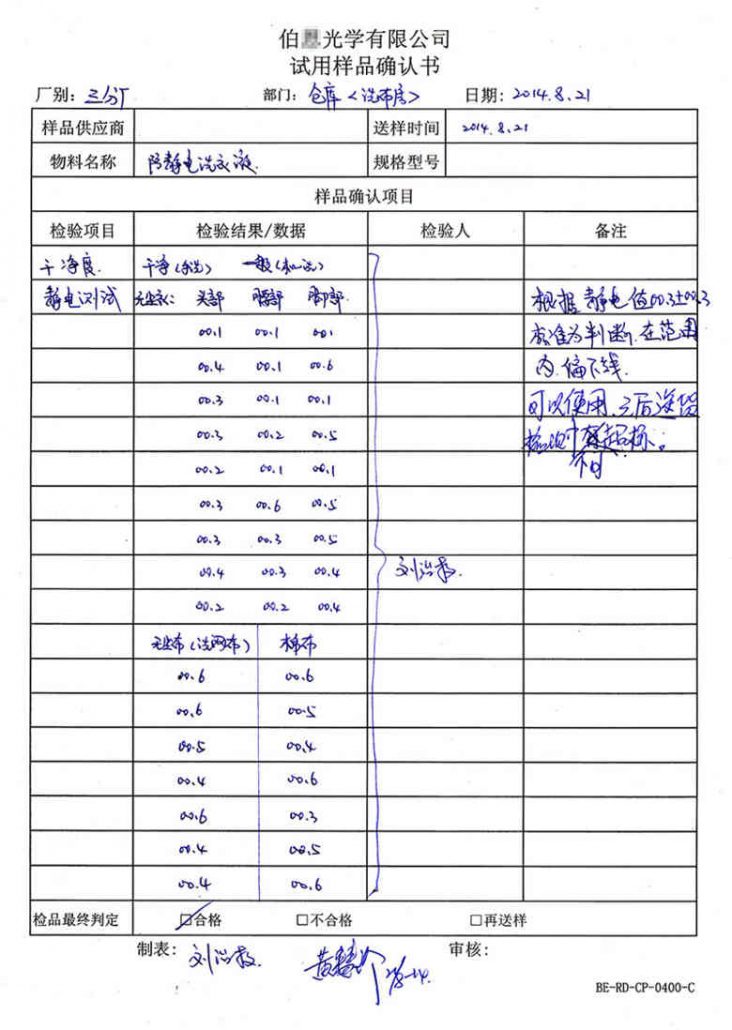 伯 光学有限公司
试用样品确认书
厂别: 三分厂 部门: 仓库<洗布房> 日期: 2014.8.21
样品供应商 送样时间 2014.8.21
物料名称 防静电洗衣液. 规格型号
样品确认项目
检验项目 检验结果/数据 检验人 备注
干净度. 干净(手洗) 一般(机洗)
静电测试 无尘衣: 头部 腰部 脚部. 根据静电值00.3±00.3
00.1 00.1 00.1 标准为判断,在范围
00.4 00.1 00.6 内.偏下线.
00.3 00.1 00.1 可以使用.之后送货
00.3 00.2 00.5 检测中 超标。
00.2 00.1 00.1 不可
00.3 00.6 00.5
00.3 00.3 00.5
00.4 00.3 00.4 刘
00.2 00.2 00.4
无尘布(洗网布) 棉布
00.6 00.6
00.6 00.5
00.5 00.4
00.4 00.6
00.6 00.3
00.4 00.5
00.4 00.6
检品最终判定 ☑合格 □不合格 □再送样
制表: 刘 黄 审核:
BE-RD-CP-0400-C